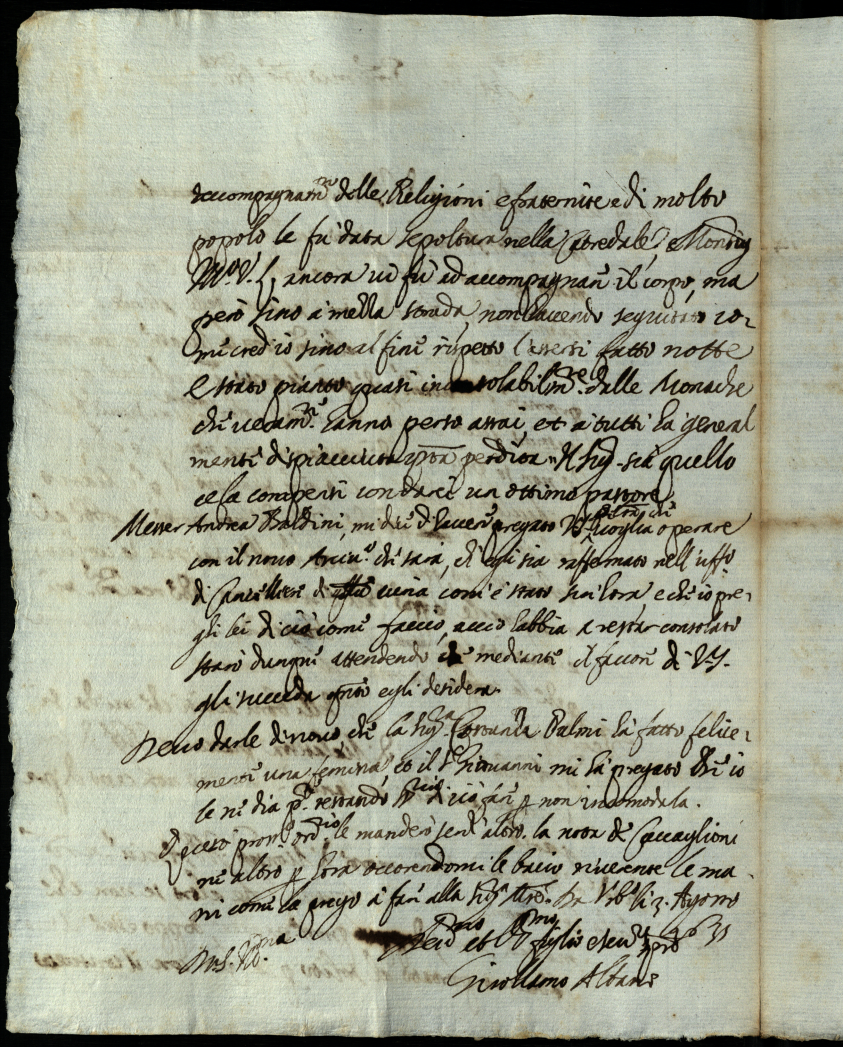 accompagnam.to delle Religioni e fraternite e di molto
popolo le fu data sepoltura nella Catedale, e Monsig
ancora vi fu ad accompagnare il corpo, ma
però sino a mezza strada, non havendo seguitato io
mi cred io sino al fine rispetto l'essersi fatto notte
e stato pianto quasi inconsolabilm.te dalle Monache
che veram.te hanno perso assai, et a tutti ha general
mente dispiacciuta q.sta perdita. Il Sig. sia quello
ce la compensi con darci un ottimo pastore
Messer Andrea Baldini, mi dice d'havere pregato V.S. voglia operare
con il novo Arciv.o che sarà, che egli sia raffermato nell'uff.o
di Cancelliere di curia come è stato sin hora e che io pre-
ghi lei di ciò come faccio, acciò habbia a restar consolato
starò dunque attendendo che mediante il favore di V.S.
gli succeda q.nto egli desidera.
Devo darle di novo che la Sig.ra Costanza Palmi ha fatto felice-
mente una femina et il S.r Giovanni mi ha pregato che io
le ne dia p.te restando di ciò fare p non incomodarla.
prox.o ord.rio le manderò senz'altro la nota de Caccaglioni
ne altro p hora occorendomi le bacio riverente le ma-
ni come la prego a fare alla Sig.ra M.re. Da Urb.o li 3. Agosto
1631
Di V.S. Ill.ma
et figlio e ser.re
Girolamo Albani